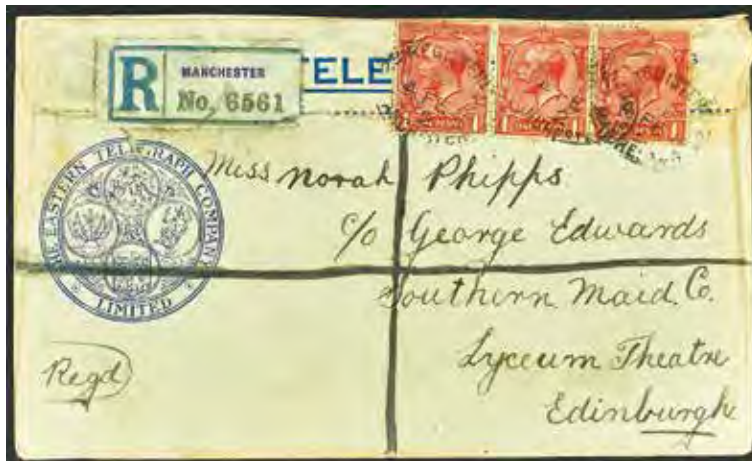 R MANCHESTER
No. 6561
TELE
THE EASTERN TELEGRAPH COMPANY
LIMITED
Miss Norah Phipps
c/o George Edwards
Southern Maid Co.
Lyceum Theatre
Edinburgh
Regd